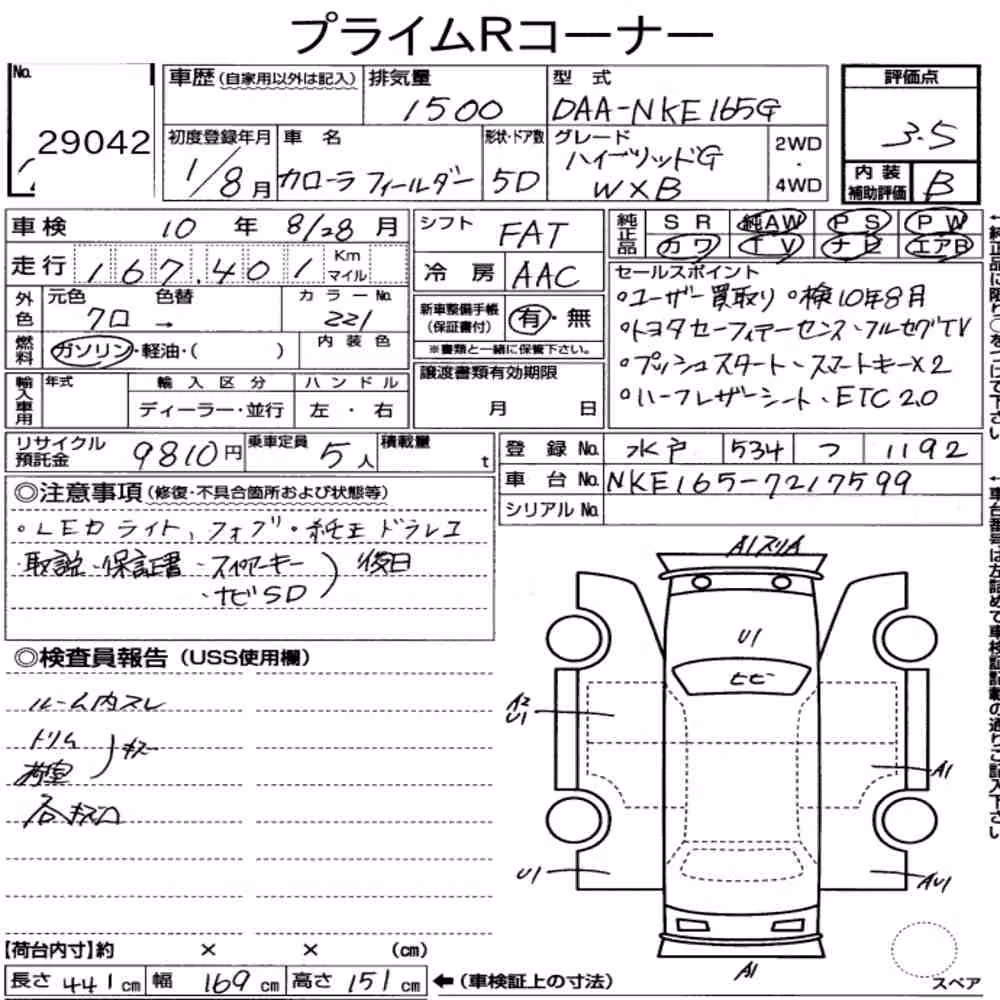 プライムRコーナー
No. 29042
車歴 (自家用以外は記入) 排気量 1500 型式 DAA-NKE165G 評価点 3.5
初度登録年月 1/8月 車名 カローラ フィールダー 形状・ドア数 5D グレード ハイブリッドG W×B 2WD・4WD 内装補助評価 B
車検 10年 8/28月 シフト FAT 純正品 SR 純AW PS PW
カワ TV ナビ エアB
走行 167,401 Km マイル 冷房 AAC
外色 元色 クロ → 色替 カラーNo. 221
新車整備手帳 (保証書付) 有・無
※書類と一緒に保管下さい。
燃料 ガソリン・軽油・( ) 内装色
輸入車用 年式 輸入区分 ハンドル
ディーラー・並行 左・右
譲渡書類有効期限
月 日
セールスポイント
○ユーザー買取り ○検10年8月
○トヨタセーフティーセンス・フルセグTV
○プッシュスタート・スマートキー×2
○ハーフレザーシート・ETC2.0
リサイクル預託金 9810円 乗車定員 5人 積載量 t
登録No. 水戸 534 つ 1192
車台No. NKE165-7217599
シリアルNo.
◎注意事項 (修復・不具合箇所および状態等)
・LEDライト、フォグ・純正ドラレコ
・取説・保証書・スペアーキー
・ナビSD ) 後日
◎検査員報告 (USS使用欄)
ルーム内スレ
トリム
荷室 ) キズ
A1スリA
U1
ヒビ
A2
U1
A1
U1
AU1
A1
スペア
【荷台内寸】約 × × (cm)
長さ 441cm 幅 169cm 高さ 151cm ←(車検証上の寸法)
←純正品に限り○をつけて下さい
←車台番号は左詰めで車検証記載の通りご記入下さい